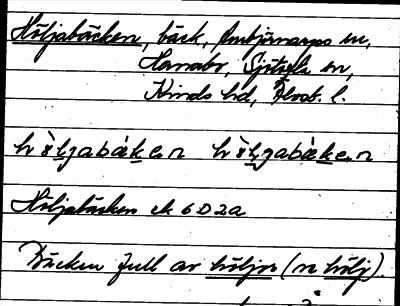 Höljabäcken, bäck, Ambjörnarps sn,
Hannabo, Sjötofta sn,
Kinds hd, Älvsb. l.
hö̀ljabäken hö̀ljabäken
Höljabäcken ek 6D2a
Bäcken full av höljor (en hölj).